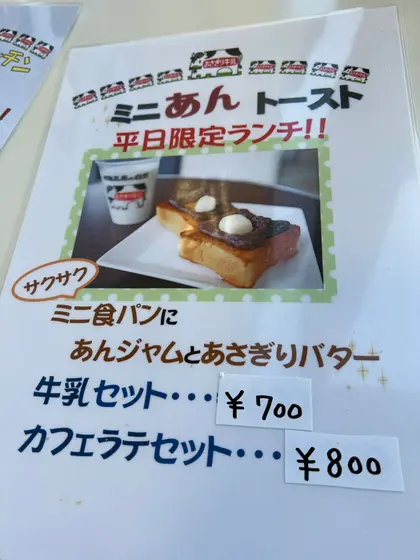 チン
!
あさぎり牛乳
ミニあん トースト
平日限定ランチ!!
サクサク
ミニ食パンに
あんジャムとあさぎりバター
牛乳セット・・・￥700
カフェラテセット・・・￥800